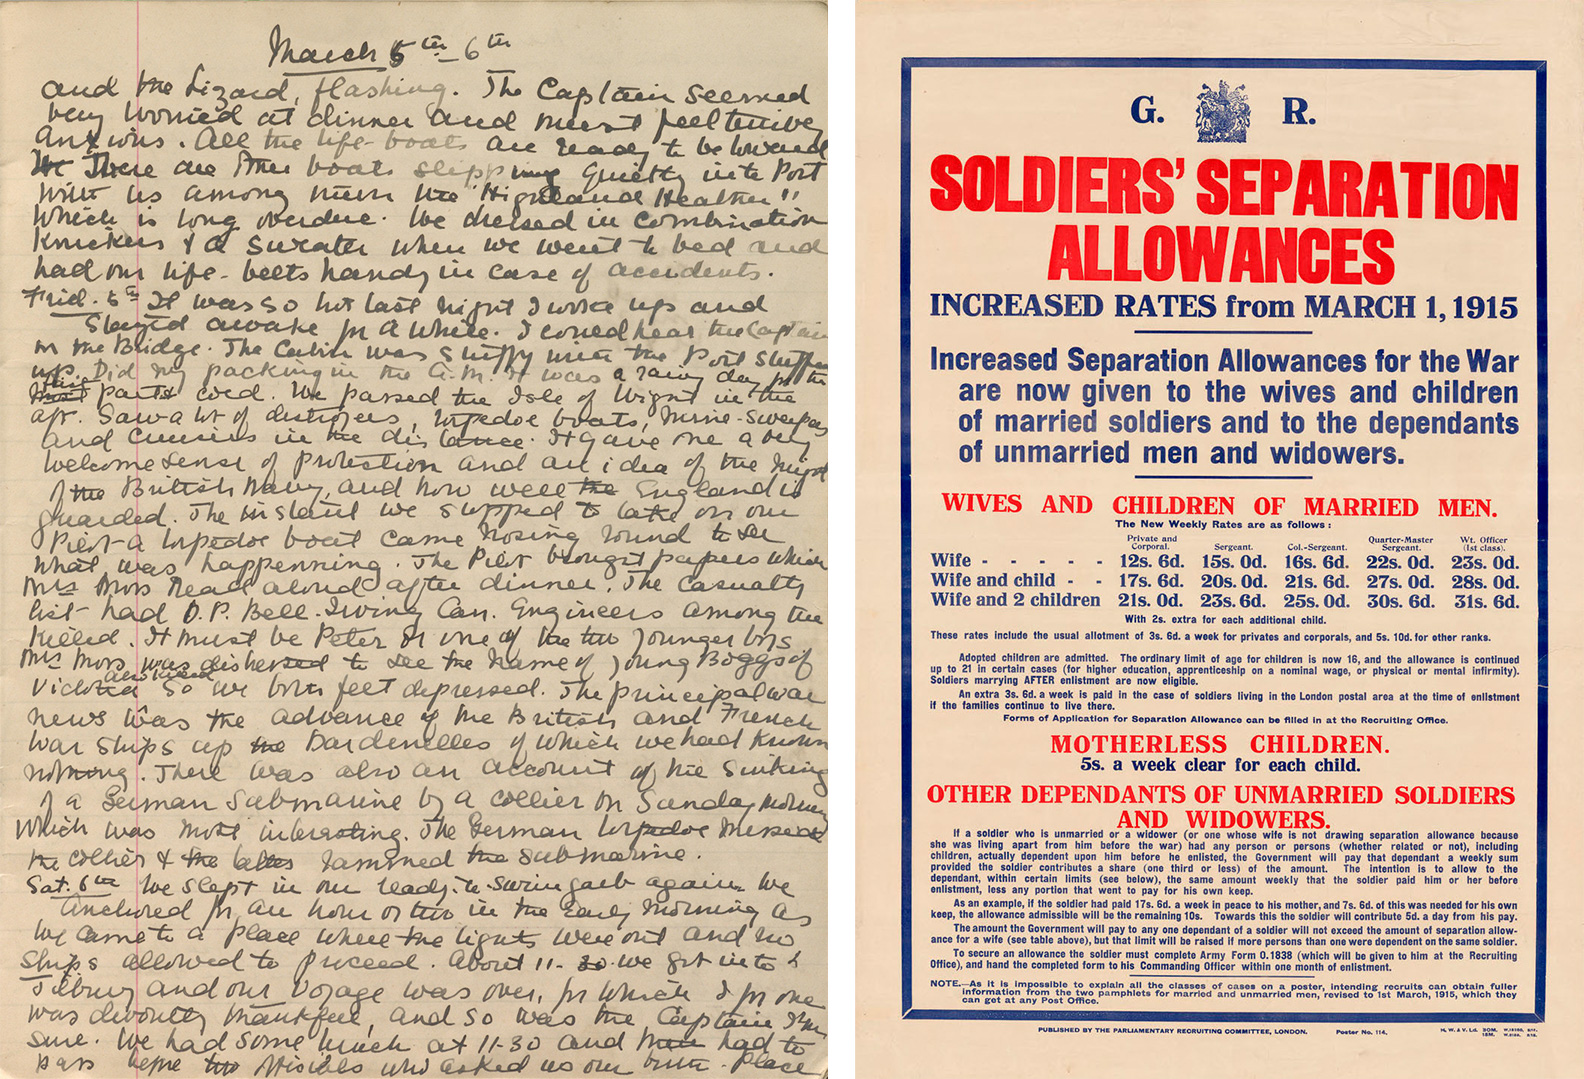 March 5th - 6th
and the Lizard, flashing. The Captain seemed
very worried at dinner and must feel terribly
anxious. All the life-boats are ready to be lowered
There are other boats slipping quietly into Port
with us among them the "Highland Heather"
which is long overdue. We dressed in combination
Knickers & a sweater when we went to bed and
had our life-belts handy in case of accidents.
Frid. 5th It was so hot last night I woke up and
stayed awake for a while. I could hear the Captain
on the Bridge. The Cabin was stuffy with the Port stuffed
up. Did my packing in the a.m. It was a rainy day for the
part & cold. We passed the Isle of Wight in the
aft. Saw a lot of destroyers, torpedoe boats, mine-sweepers
and cruisers in the distance. It gave me a very
welcome sense of protection and an idea of the might
of the British Navy, and how well the England is
guarded. The instant we stopped to take on our
Pilot a torpedoe boat came nosing round to see
what was happenning. The Pilot brought papers which
Mrs Moss read aloud after dinner. The casualty
list had D.P. Bell-Irving Can. Engineers among the
killed. It must be Peter or one of the two younger boys
Mrs Moss was distressed to see the name of young Boggs of
Victoria so we both feel depressed. The principal war
news was the advance of the British and French
war ships up the Dardenelles of which we had known
nothing. There was also an account of the sinking
of a German Submarine by a collier on Sunday morning
which was most interesting. The German torpedoe missed
the collier & the latter rammed the submarine.
Sat. 6th We slept in our ready-to-swing garb again. We
anchored for an hour or two in the early morning as
we came to a place where the lights were out and no
ships allowed to proceed. About 11-30 we got into
Tilbury and our voyage was over, for which I for one
was devoutly thankful, and so was the Captain I'm
sure. We had some lunch at 11-30 and had to
pass before officials who asked us our birth-place
G. R.
SOLDIERS' SEPARATION
ALLOWANCES
INCREASED RATES from MARCH 1, 1915
Increased Separation Allowances for the War
are now given to the wives and children
of married soldiers and to the dependants
of unmarried men and widowers.
WIVES AND CHILDREN OF MARRIED MEN.
The New Weekly Rates are as follows :
Private and Corporal. Sergeant. Col.-Sergeant. Quarter-Master Sergeant. Wt. Officer (1st class).
Wife - - - - - 12s. 6d. 15s. 0d. 16s. 6d. 22s. 0d. 23s. 0d.
Wife and child - - 17s. 6d. 20s. 0d. 21s. 6d. 27s. 0d. 28s. 0d.
Wife and 2 children 21s. 0d. 23s. 6d. 25s. 0d. 30s. 6d. 31s. 6d.
With 2s. extra for each additional child.
These rates include the usual allotment of 3s. 6d. a week for privates and corporals, and 5s. 10d. for other ranks.
Adopted children are admitted. The ordinary limit of age for children is now 16, and the allowance is continued
up to 21 in certain cases (for higher education, apprenticeship on a nominal wage, or physical or mental infirmity).
Soldiers marrying AFTER enlistment are now eligible.
An extra 3s. 6d. a week is paid in the case of soldiers living in the London postal area at the time of enlistment
if the families continue to live there.
Forms of Application for Separation Allowance can be filled in at the Recruiting Office.
MOTHERLESS CHILDREN.
5s. a week clear for each child.
OTHER DEPENDANTS OF UNMARRIED SOLDIERS
AND WIDOWERS.
If a soldier who is unmarried or a widower (or one whose wife is not drawing separation allowance because
she was living apart from him before the war) had any person or persons (whether related or not), including
children, actually dependent upon him before he enlisted, the Government will pay that dependant a weekly sum
provided the soldier contributes a share (one third or less) of the amount. The intention is to allow to the
dependant, within certain limits (see below), the same amount weekly that the soldier paid him or her before
enlistment, less any portion that went to pay for his own keep.
As an example, if the soldier had paid 17s. 6d. a week in peace to his mother, and 7s. 6d. of this was needed for his own
keep, the allowance admissible will be the remaining 10s. Towards this the soldier will contribute 5d. a day from his pay.
The amount the Government will pay to any one dependant of a soldier will not exceed the amount of separation allow-
ance for a wife (see table above), but that limit will be raised if more persons than one were dependent on the same soldier.
To secure an allowance the soldier must complete Army Form O.1838 (which will be given to him at the Recruiting
Office), and hand the completed form to his Commanding Officer within one month of enlistment.
NOTE.—As it is impossible to explain all the classes of cases on a poster, intending recruits can obtain fuller
information from the two pamphlets for married and unmarried men, revised to 1st March, 1915, which they
can get at any Post Office.
PUBLISHED BY THE PARLIAMENTARY RECRUITING COMMITTEE, LONDON. Poster No. 114. H. W. & V. Ld.